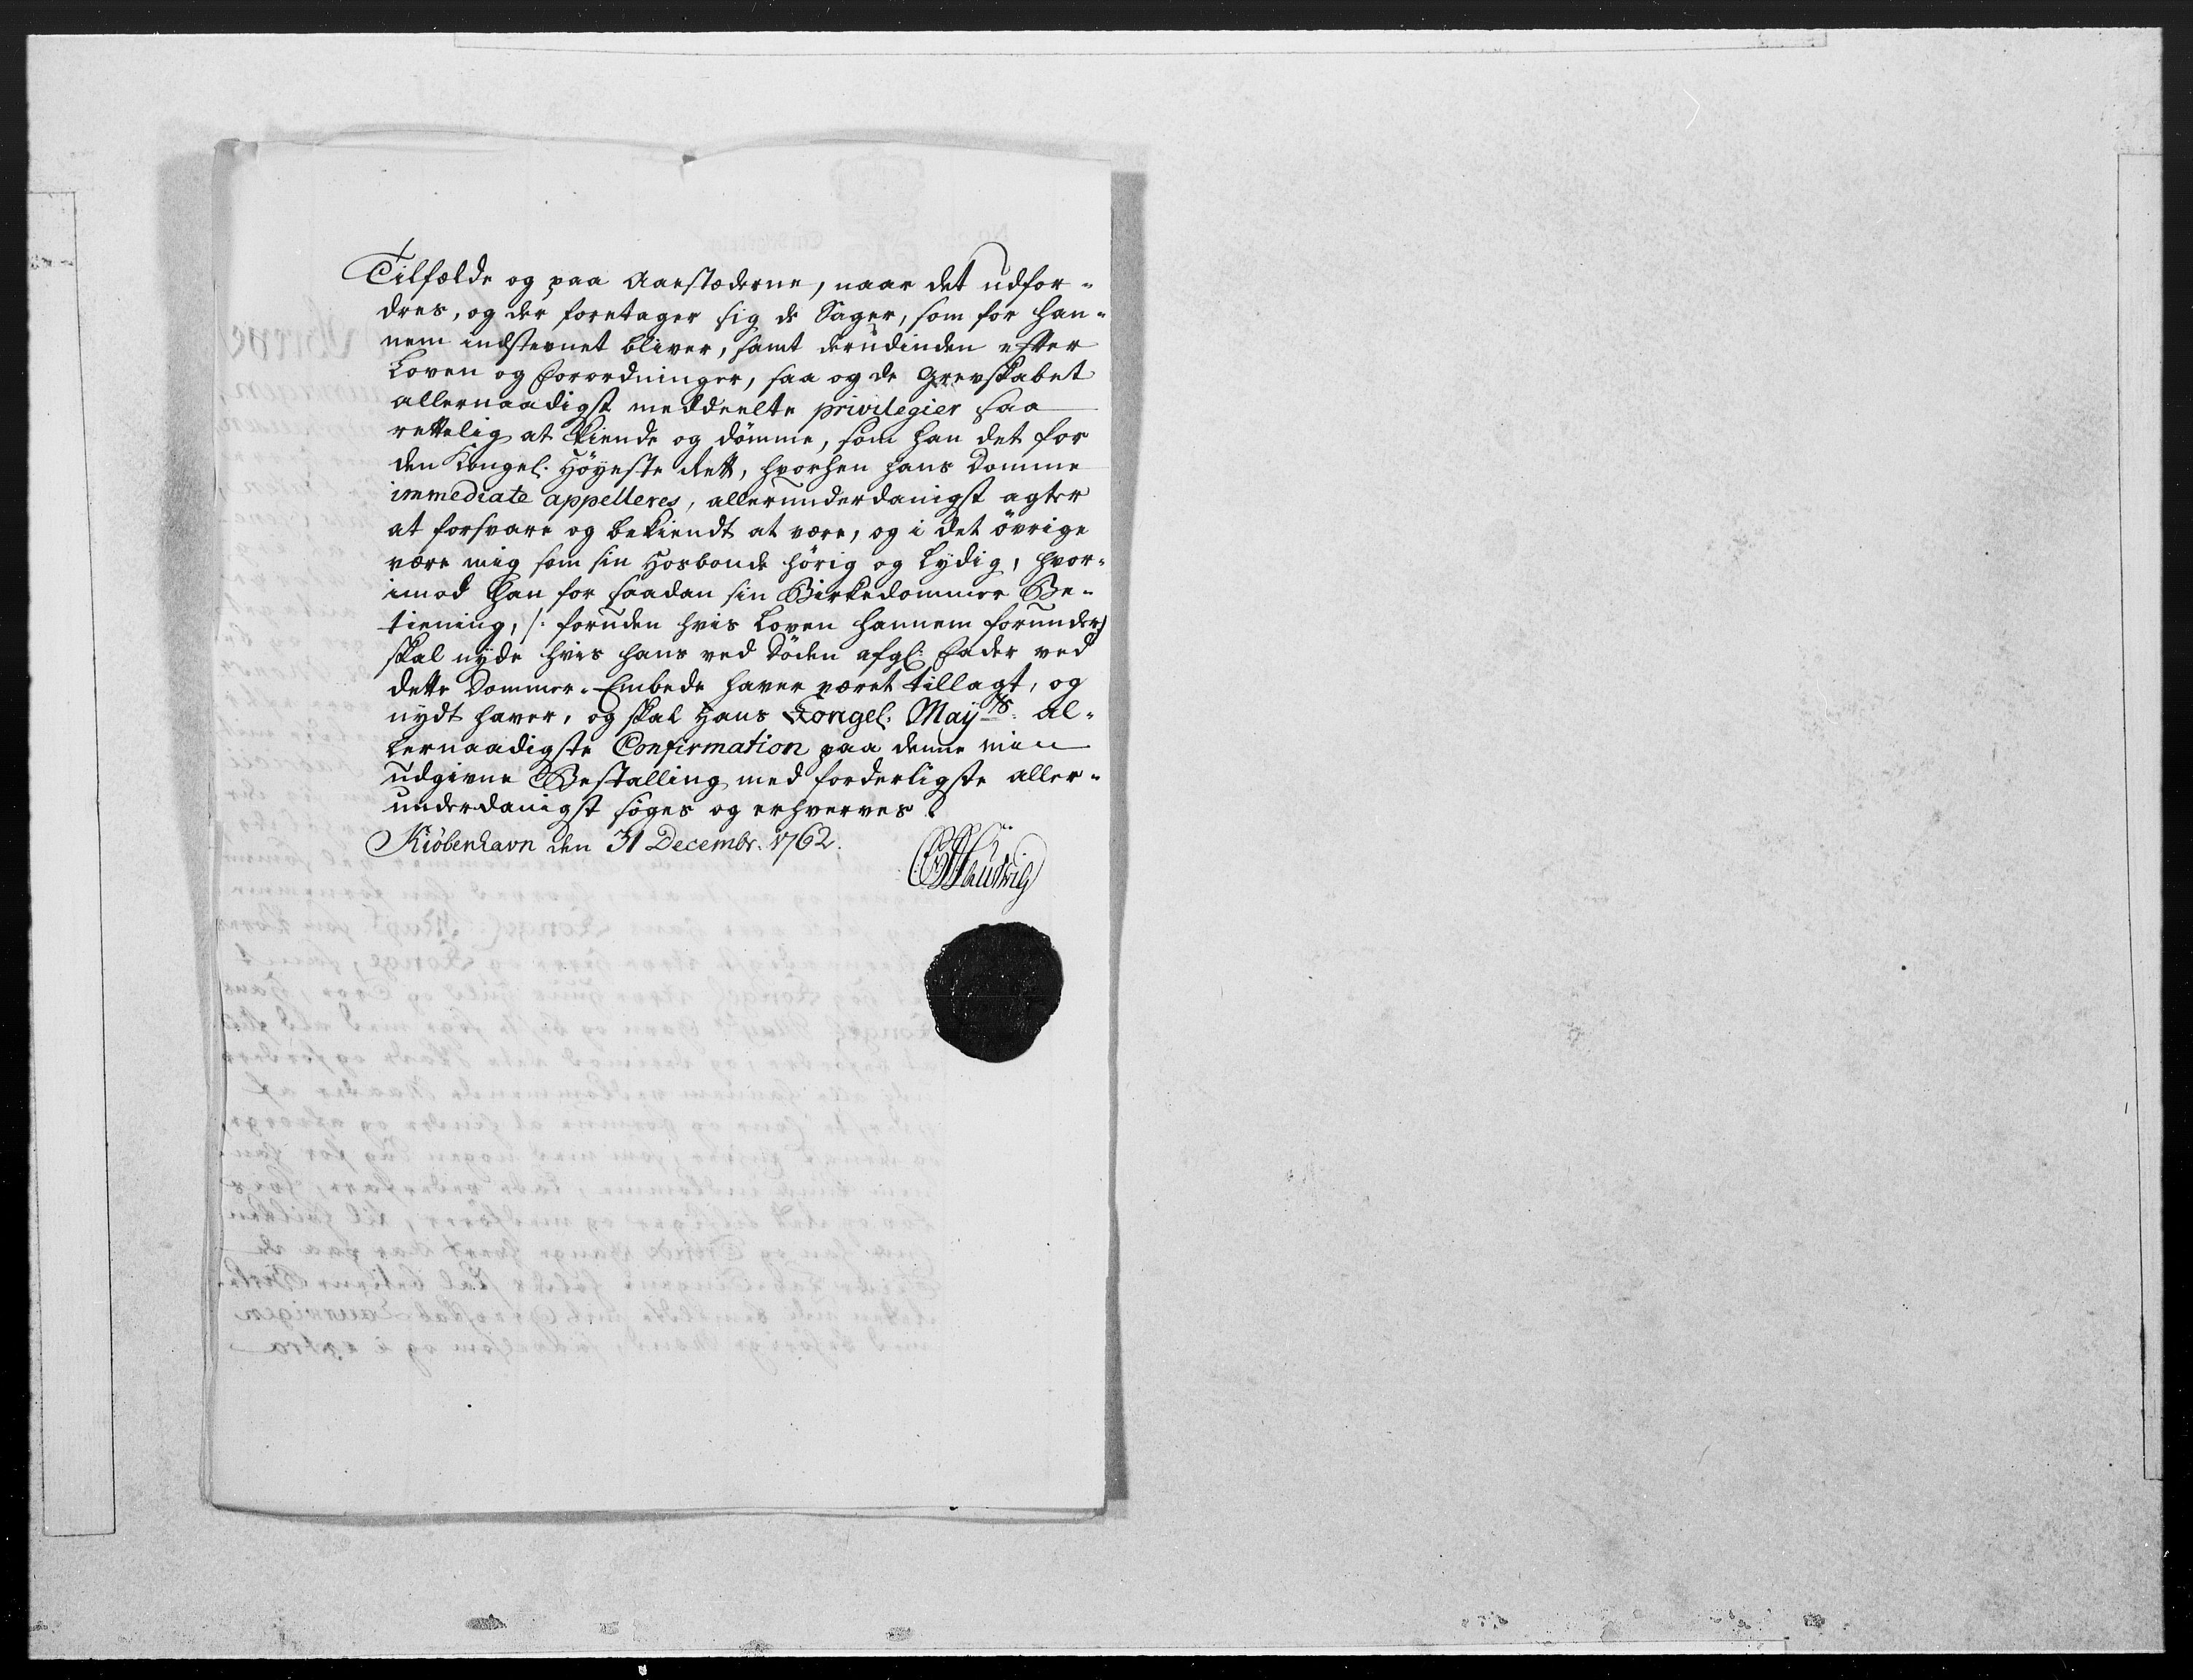 Tilfælde og paa Aarstæderne, naar det udfor-
dres, og der foretager sig de Sager, som for han-
nem indstevnet bliver, samt derudinden efter
Loven og Forordninger, saa og de Grevskabet
allernaadigst meddeelte privilegier saa
rettelig at kiende og dömme, som han det for
den Kongel. Höyeste Rett, hvorhen hans Domme
immediate appelleres, allerunderdanigst agter
at forsvare og bekiendt at være, og i det övrige
være mig som sin Hosbonde hörig og lydig, hvor-
imod han for saadan sin Birkedommer Be-
tiening, /: foruden hvis Loven hannem forunder/
skal nyde hvis hans ved Döden afgl. Fader ved
dette Dommer-Embede haver været tillagt, og
nydt haver, og skal Hans Kongel. Mayts. al-
lernaadigste Confirmation paa denne min
udgivne Bestalling med forderligste aller-
underdanigst söges og erhverves.
Kiöbenhavn den 31 Decembr. 1762.